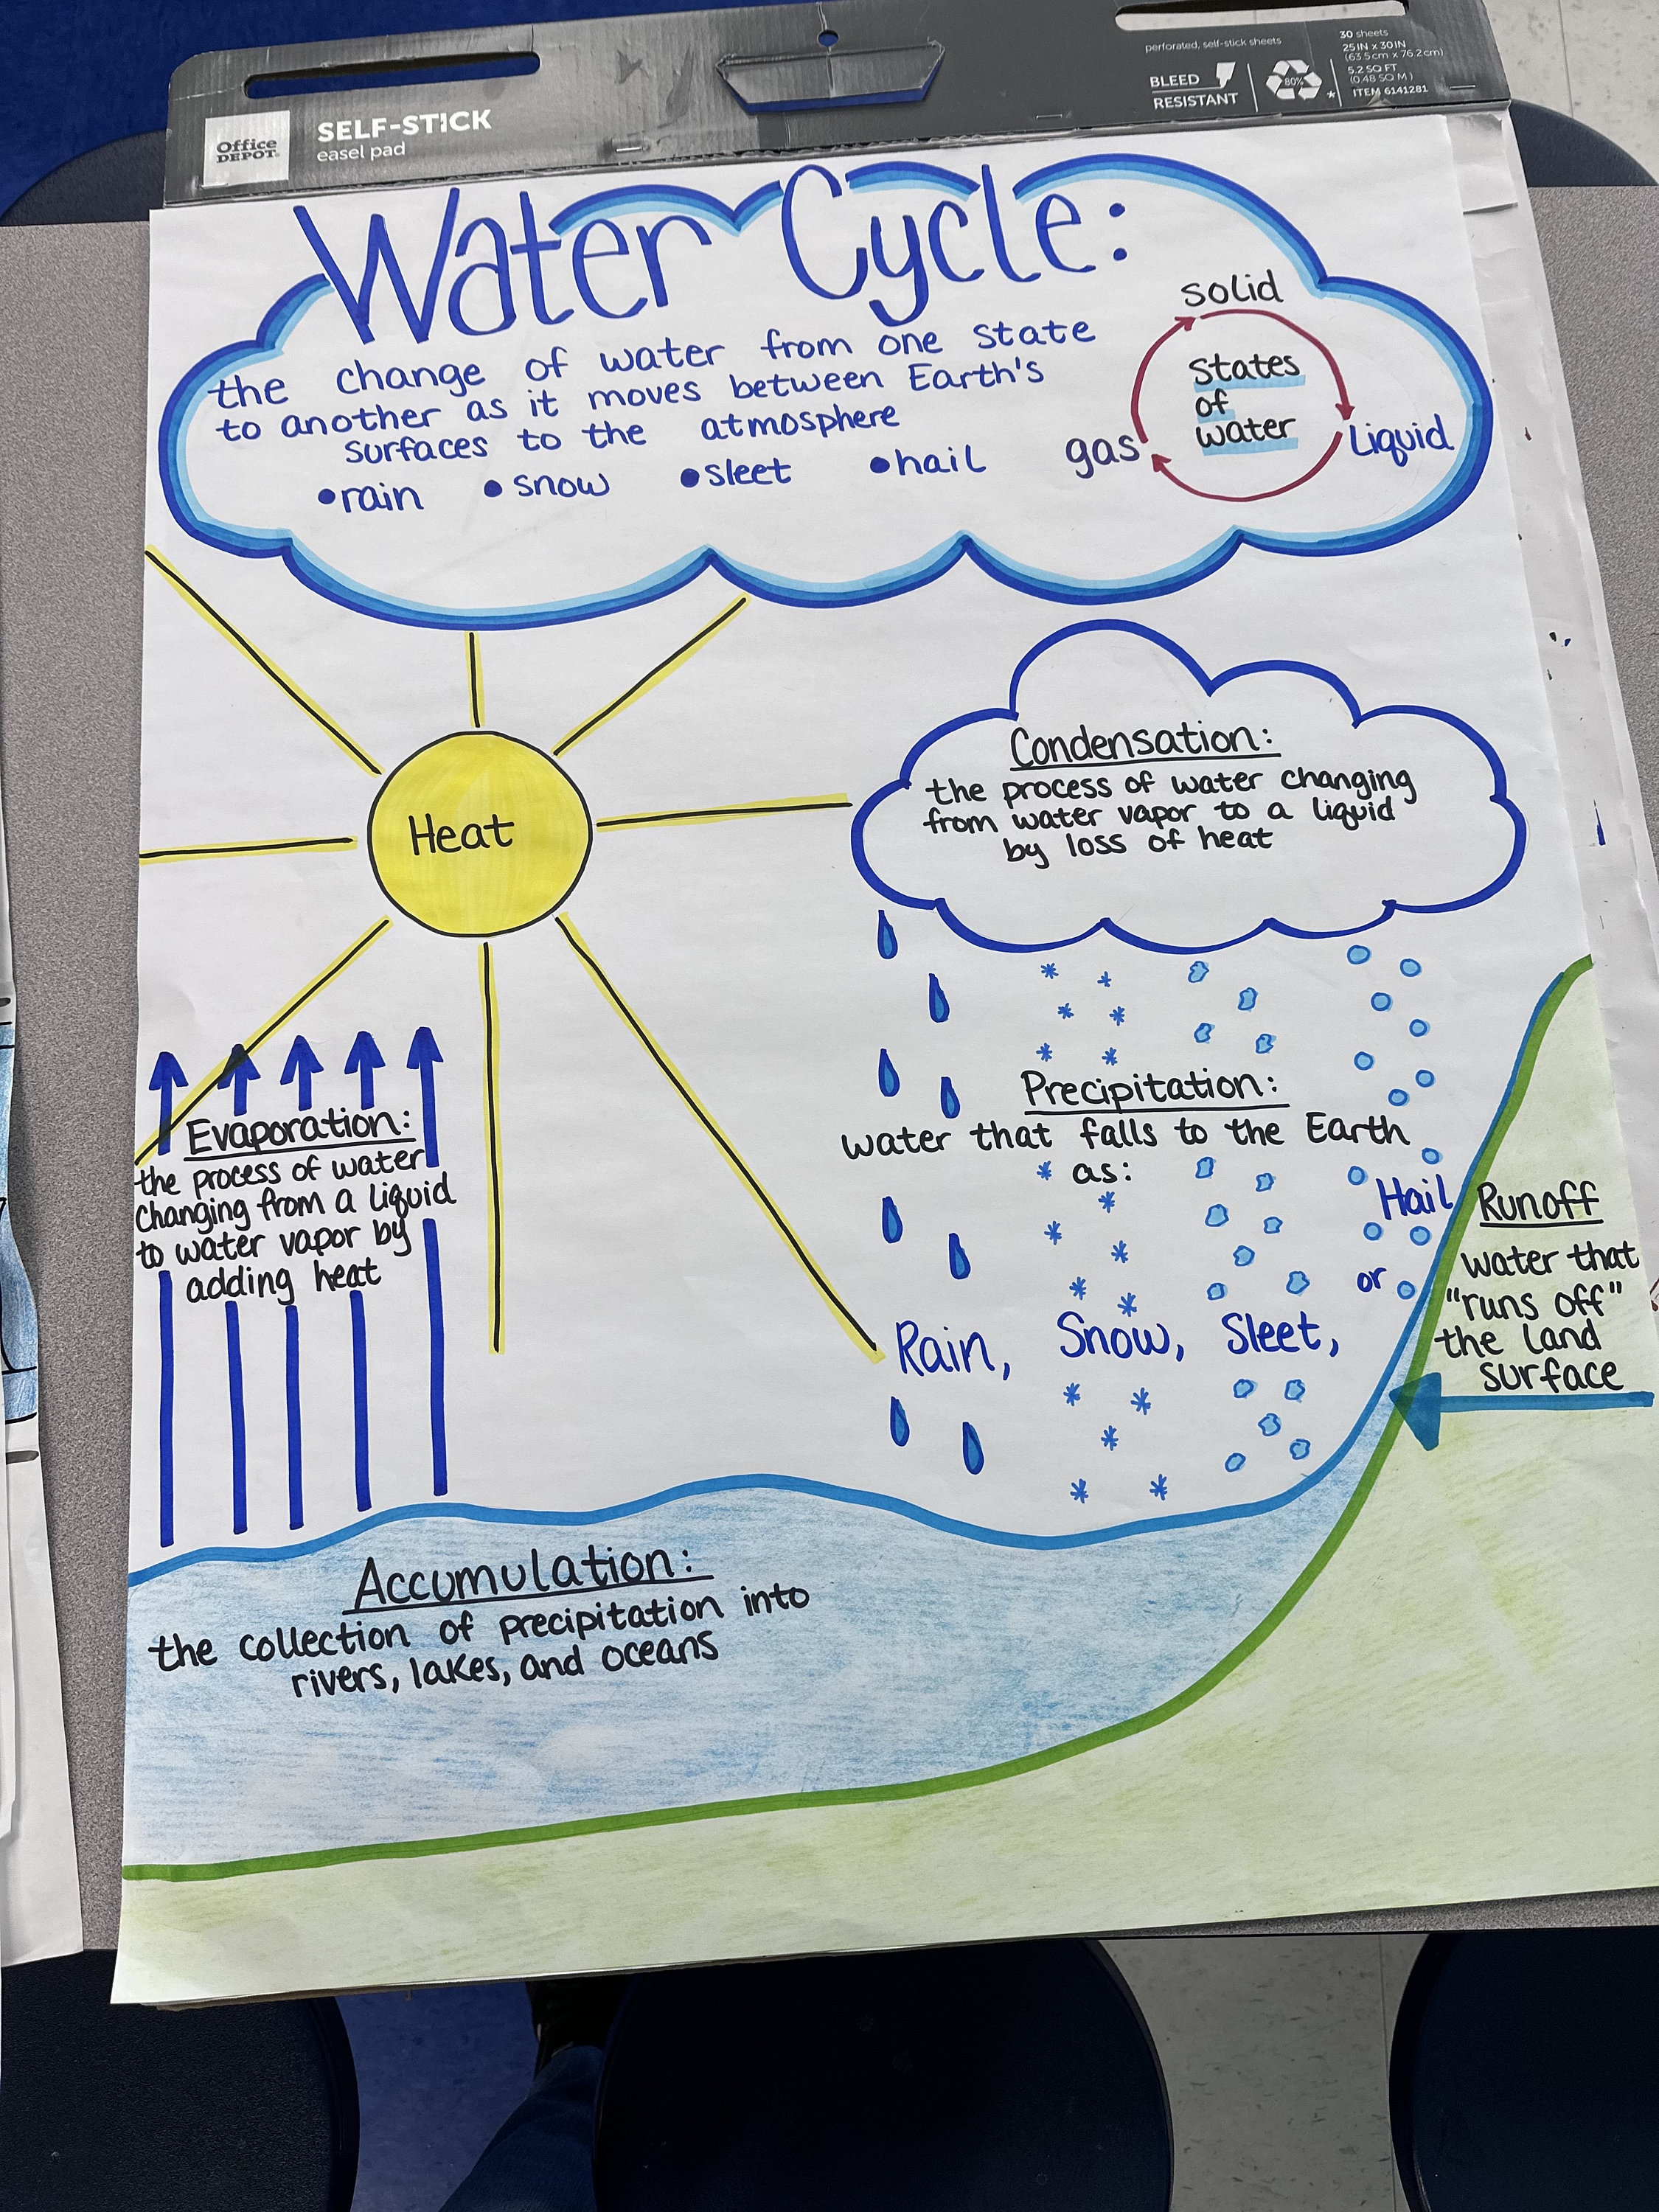 Office
DEPOT
SELF-STICK
easel pad
perforated, self-stick sheets
BLEED
RESISTANT
80%
*
30 sheets
25IN x 30IN
(63.5cm x 76.2cm)
5.2 SQ FT
(0.48 SQ M)
ITEM 6141281
Water Cycle:
the change of water from one state
to another as it moves between Earth's
surfaces to the atmosphere
•rain •snow •sleet •hail
solid
States
of
water
gas
Liquid
Heat
Condensation:
the process of water changing
from water vapor to a liquid
by loss of heat
Evaporation:
the process of water
changing from a liquid
to water vapor by
adding heat
Precipitation:
water that falls to the Earth
as:
Rain, Snow, Sleet,
or
Hail
Runoff
water that
"runs off"
the land
surface
Accumulation:
the collection of precipitation into
rivers, lakes, and oceans